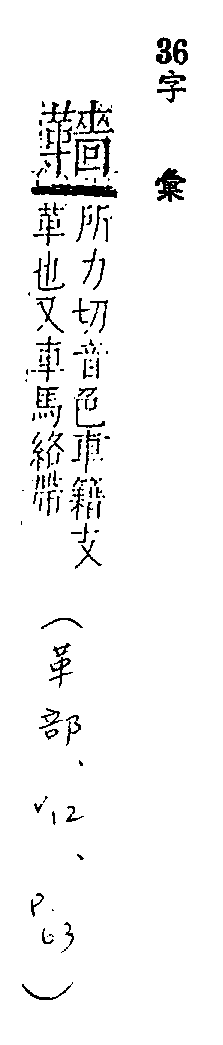 36字 彙
所力切音色車籍交
革也又車馬絡帶
(革部、V12、P.63)